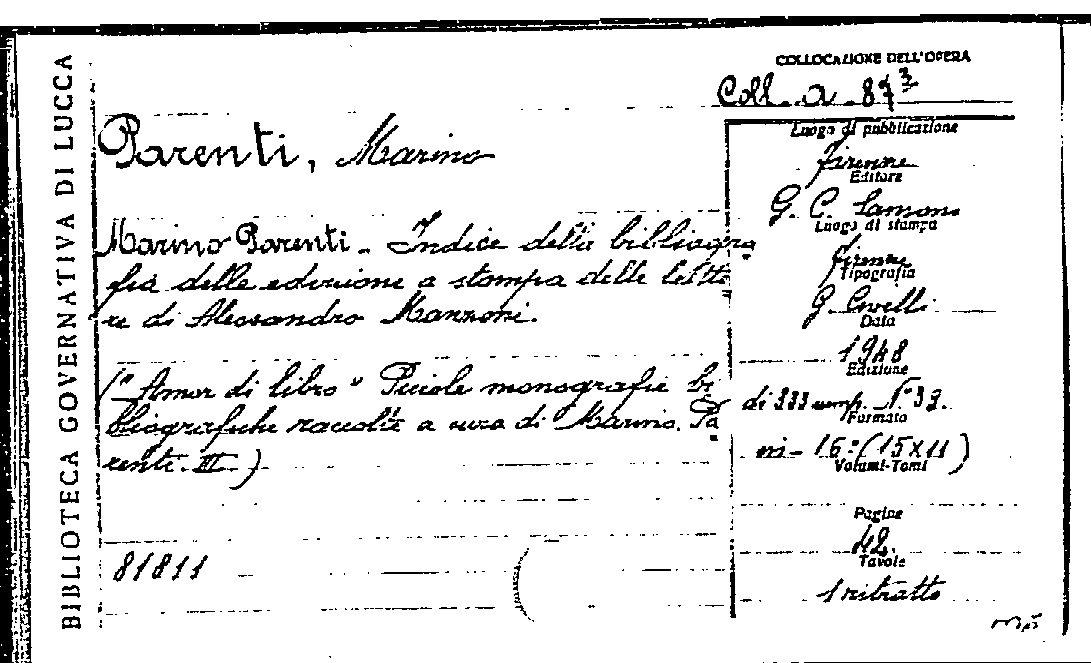 BIBLIOTECA GOVERNATIVA DI LUCCA
COLLOCAZIONE DELL'OPERA
Coll. a. 87³
Parenti, Marino
Marino Parenti - Indice della bibliogra
fia delle edizione a stampa delle lette
re di Alessandro Manzoni.
("Amor di libro" Piccole monografie bi
bliografiche raccolte a cura di Marino. Pa
renti. III.)
81811
Luogo di pubblicazione
Firenze
Editore
G. C. Sansoni
Luogo di stampa
Firenze
Tipografia
G. Civelli
Data
1948
Edizione
di 333 esemp. N° 39.
Formato
in - 16° (15 x 11)
Volumi-Tomi
Pagine
42.
Tavole
1 ritratto